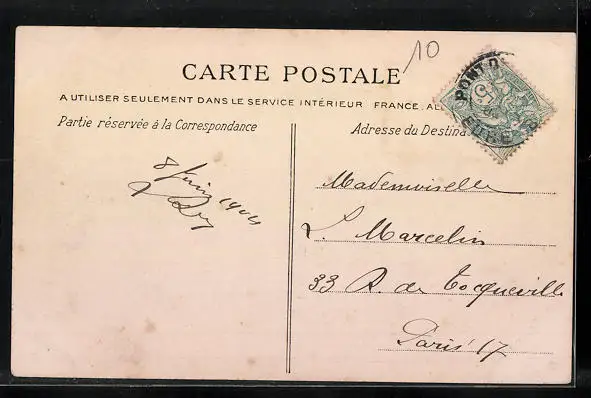 10
CARTE POSTALE
A UTILISER SEULEMENT DANS LE SERVICE INTÉRIEUR FRANCE. AL
Partie réservée à la Correspondance
Adresse du Destina
PONT D
EURE
8 Juin 1904
Mademoiselle
L. Marcelin
33 R. de Tocqueville
Paris 17